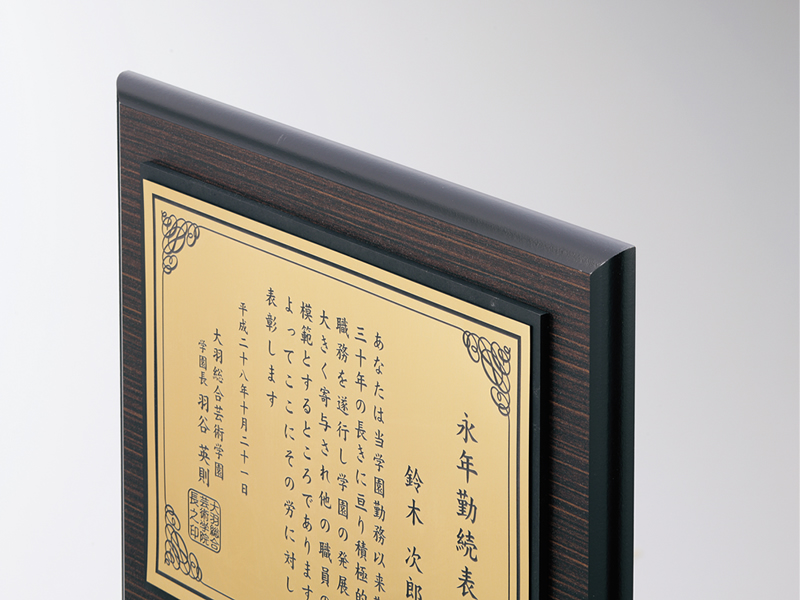 永年勤続表
鈴木 次郎
あなたは当学園勤務以来
三十年の長きに亘り積極的
職務を遂行し学園の発展
大きく寄与され他の職員の
模範とするところであります
よってここにその労に対し
表彰します
平成二十八年十月二十一日
大羽総合芸術学園
学園長 羽谷 英則
大羽総合
芸術学院
長之印